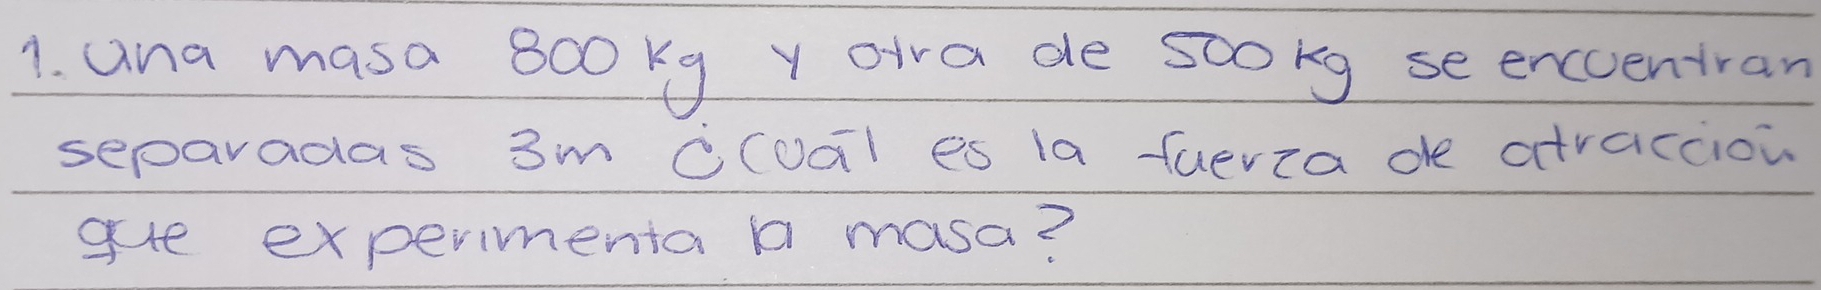 1. Una masa 800 kg y otra de 500 kg se encuentran
separadas 3m ¿Cuál es la fuerza de atracción
que experimenta la masa?